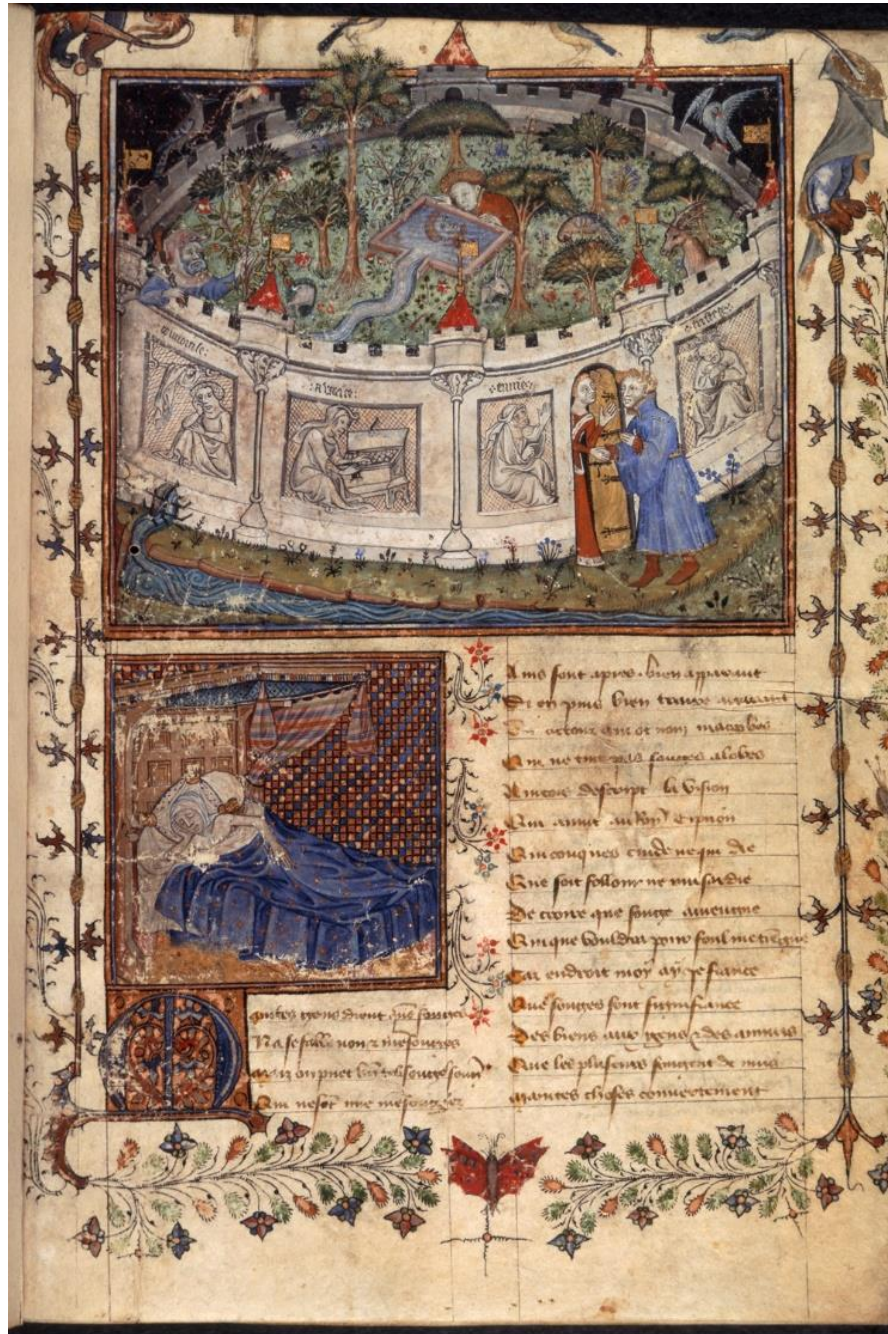 :Auarice:
:enuie:
tristesse
Maintes gens dient que songes
Na se fable non & mesonges
songe
Qui ne sot mie mesongier
Ains sont apres bien apparant
Si en puis bien traire
acteur qui ot non macrobes
Qui ne tint pas songes a lobes
Aincois descript la vision
Qui auint au Roy Cipion
Quiconques cuide ne qui die
Que soit folour ne musardie
De croire que songe auiengne
Qui que vouldra pour foul me tiengne
Car endroit moy ay ie fiance
Que songes sont signifiance
Des biens aux gens & des annuis
Que les plusieurs songent de nuis
Maintes choses couuertement